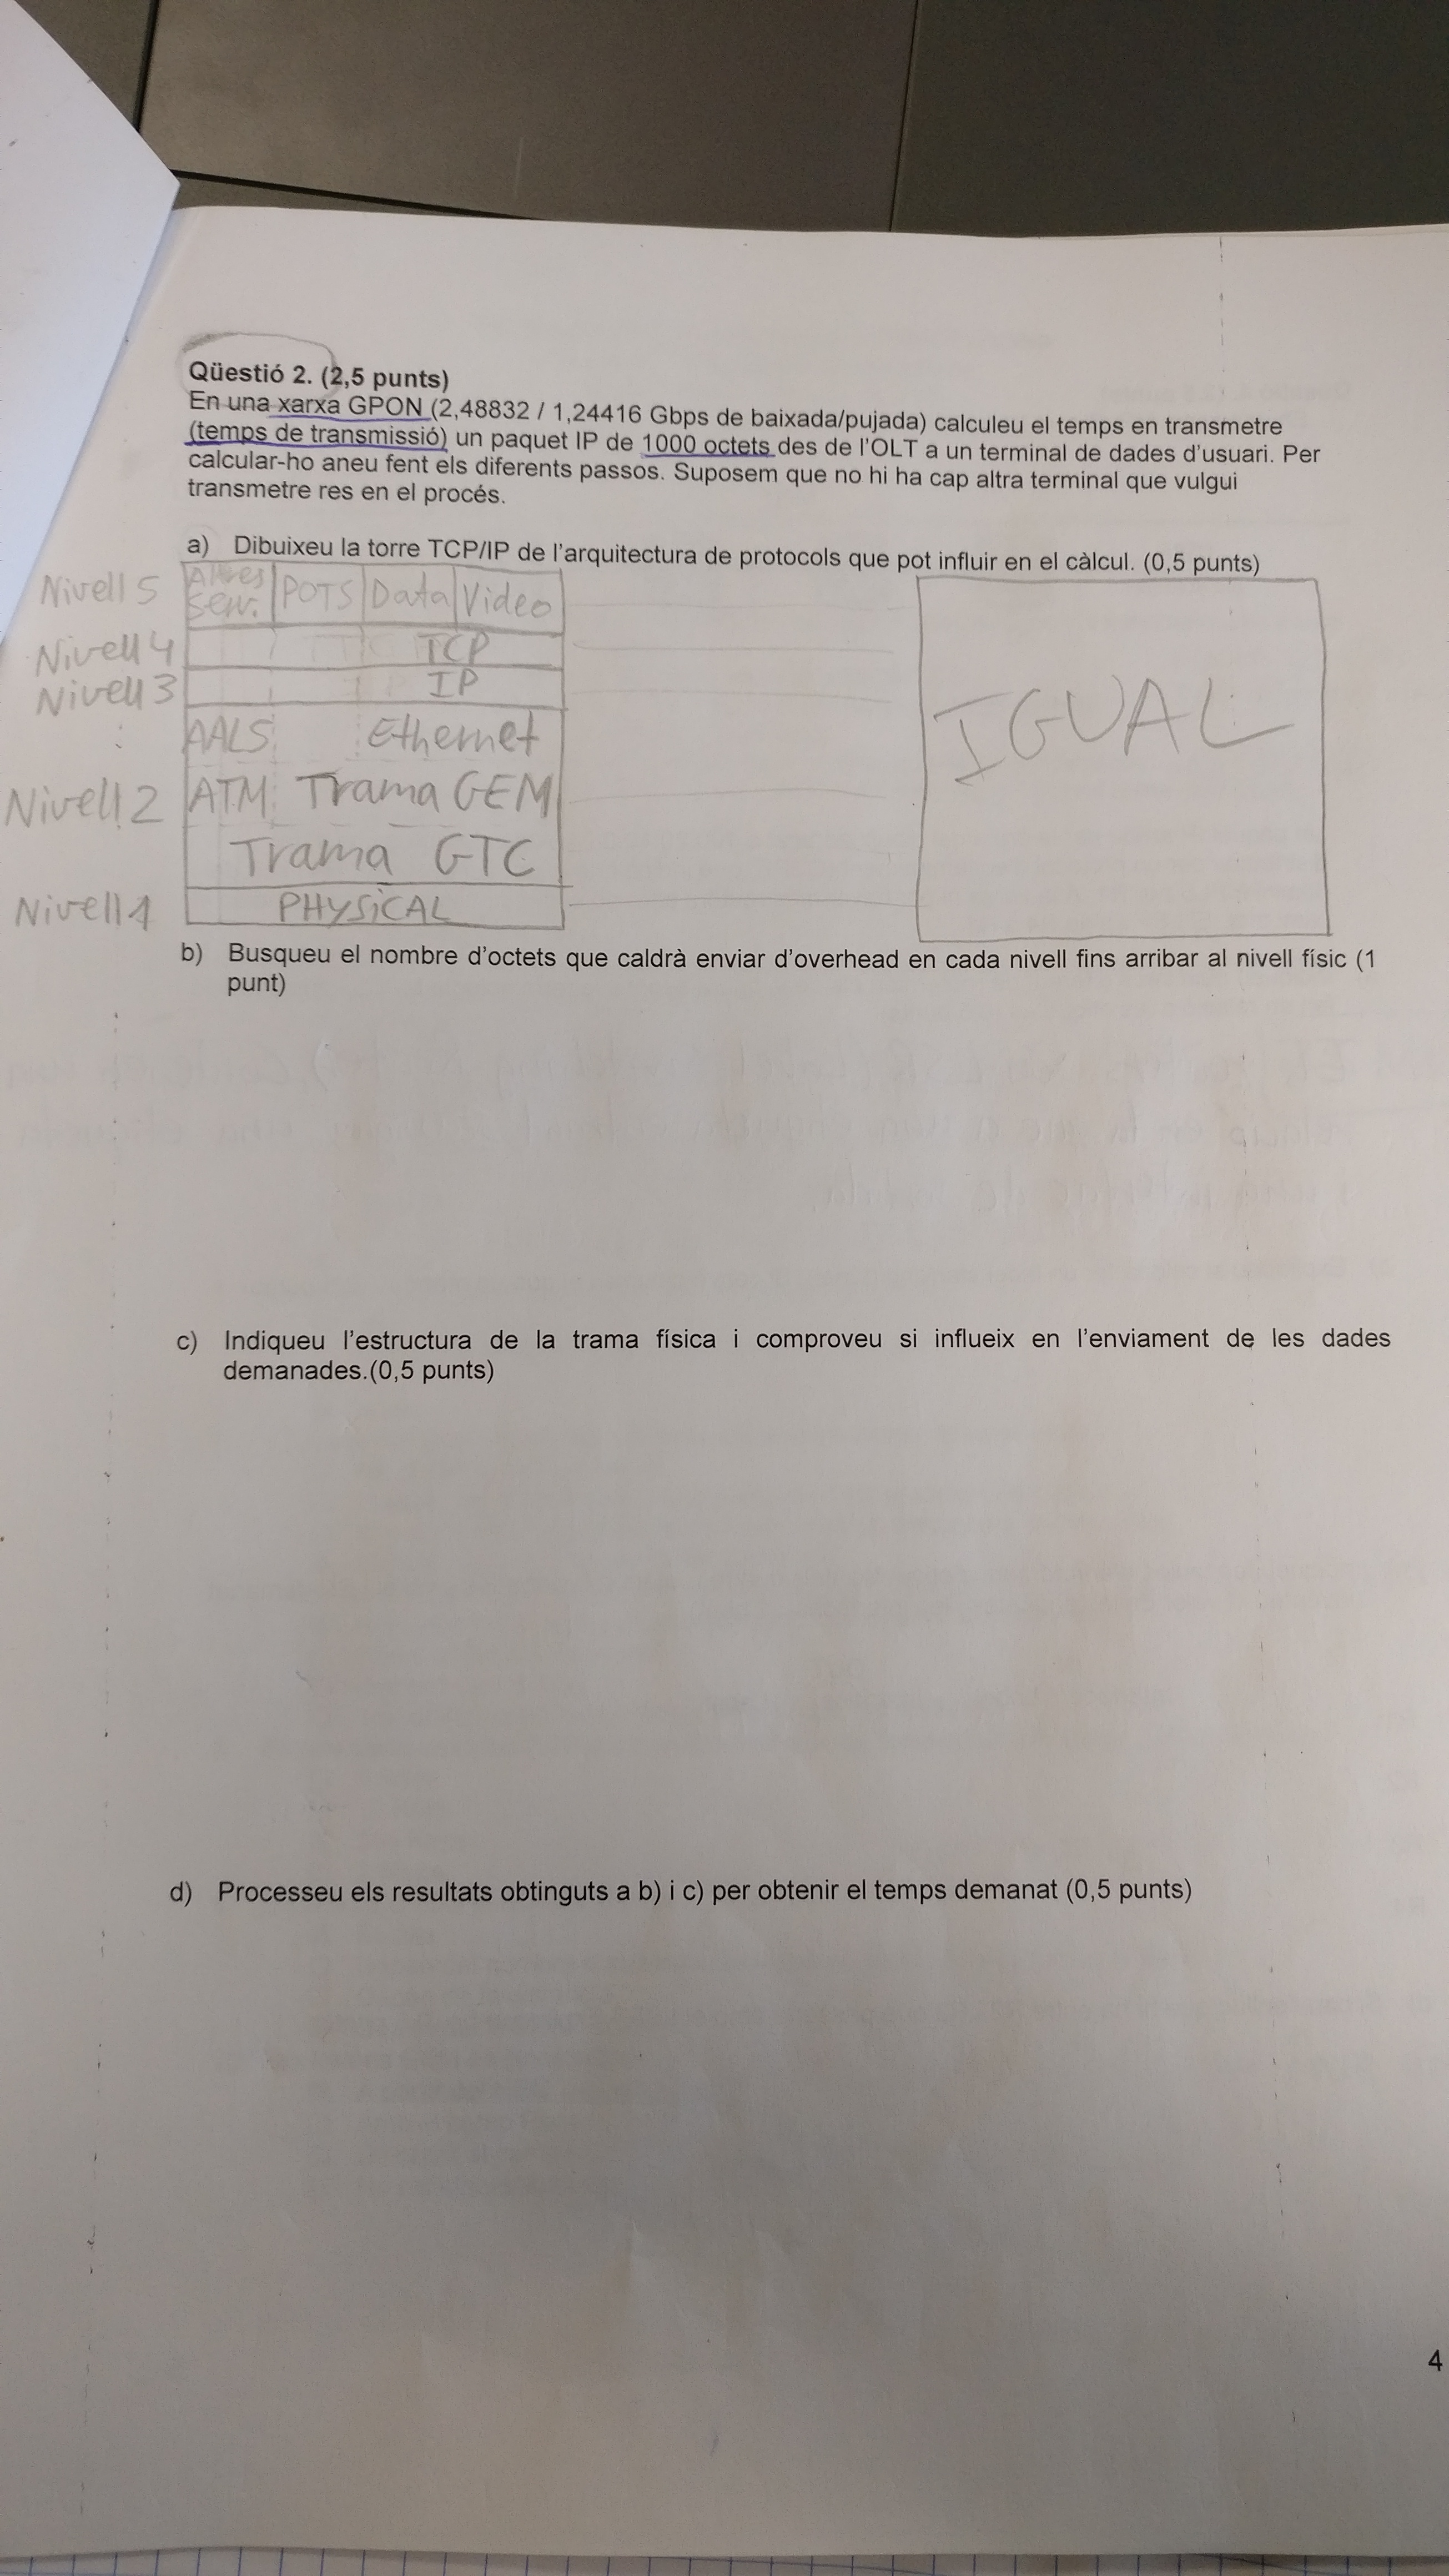 Qüestió 2. (2,5 punts)
En una xarxa GPON (2,48832 / 1,24416 Gbps de baixada/pujada) calculeu el temps en transmetre
(temps de transmissió) un paquet IP de 1000 octets des de l'OLT a un terminal de dades d'usuari. Per
calcular-ho aneu fent els diferents passos. Suposem que no hi ha cap altra terminal que vulgui
transmetre res en el procés.
a) Dibuixeu la torre TCP/IP de l'arquitectura de protocols que pot influir en el càlcul. (0,5 punts)
Nivell 5 Altres serv. POTS Data Video
Nivell 4 TCP
Nivell 3 IP
AAL5 Ethernet
Nivell 2 ATM Trama GEM
Trama GTC
Nivell 1 PHYSICAL
IGUAL
b) Busqueu el nombre d'octets que caldrà enviar d'overhead en cada nivell fins arribar al nivell físic (1
punt)
c) Indiqueu l'estructura de la trama física i comproveu si influeix en l'enviament de les dades
demanades.(0,5 punts)
d) Processeu els resultats obtinguts a b) i c) per obtenir el temps demanat (0,5 punts)
4